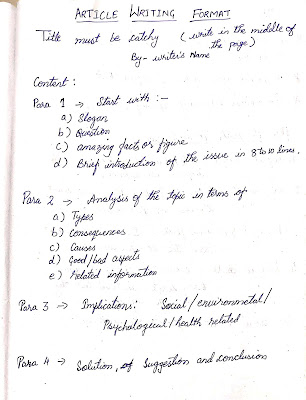 ARTICLE WRITING FORMAT
Title must be catchy (write in the middle of
the page)
By - writer's Name
Content :
Para 1 → Start with :-
a) Slogan
b) Question
c) amazing fact or figure
d) Brief introduction of the issue in 8 to 10 lines.
Para 2 → Analysis of the topic in terms of
a) Types
b) Consequences
c) Causes
d) Good/bad aspects
e) Related information
Para 3 → Implications: Social/environmetal/
Psychological/health related
Para 4 → Solution, of Suggestion and conclusion